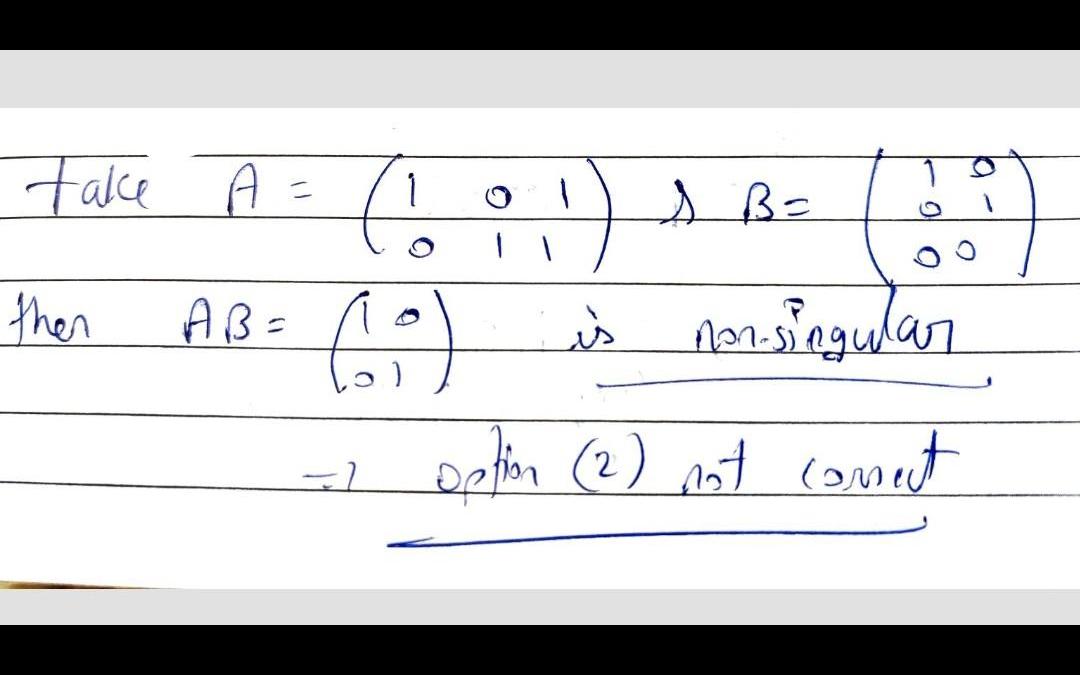 take A = (1 0 1 & B = (1 0
0 1 1) 0 1
0 0)
then AB = (1 0 is non-singular
0 1)
=> option (2) not correct